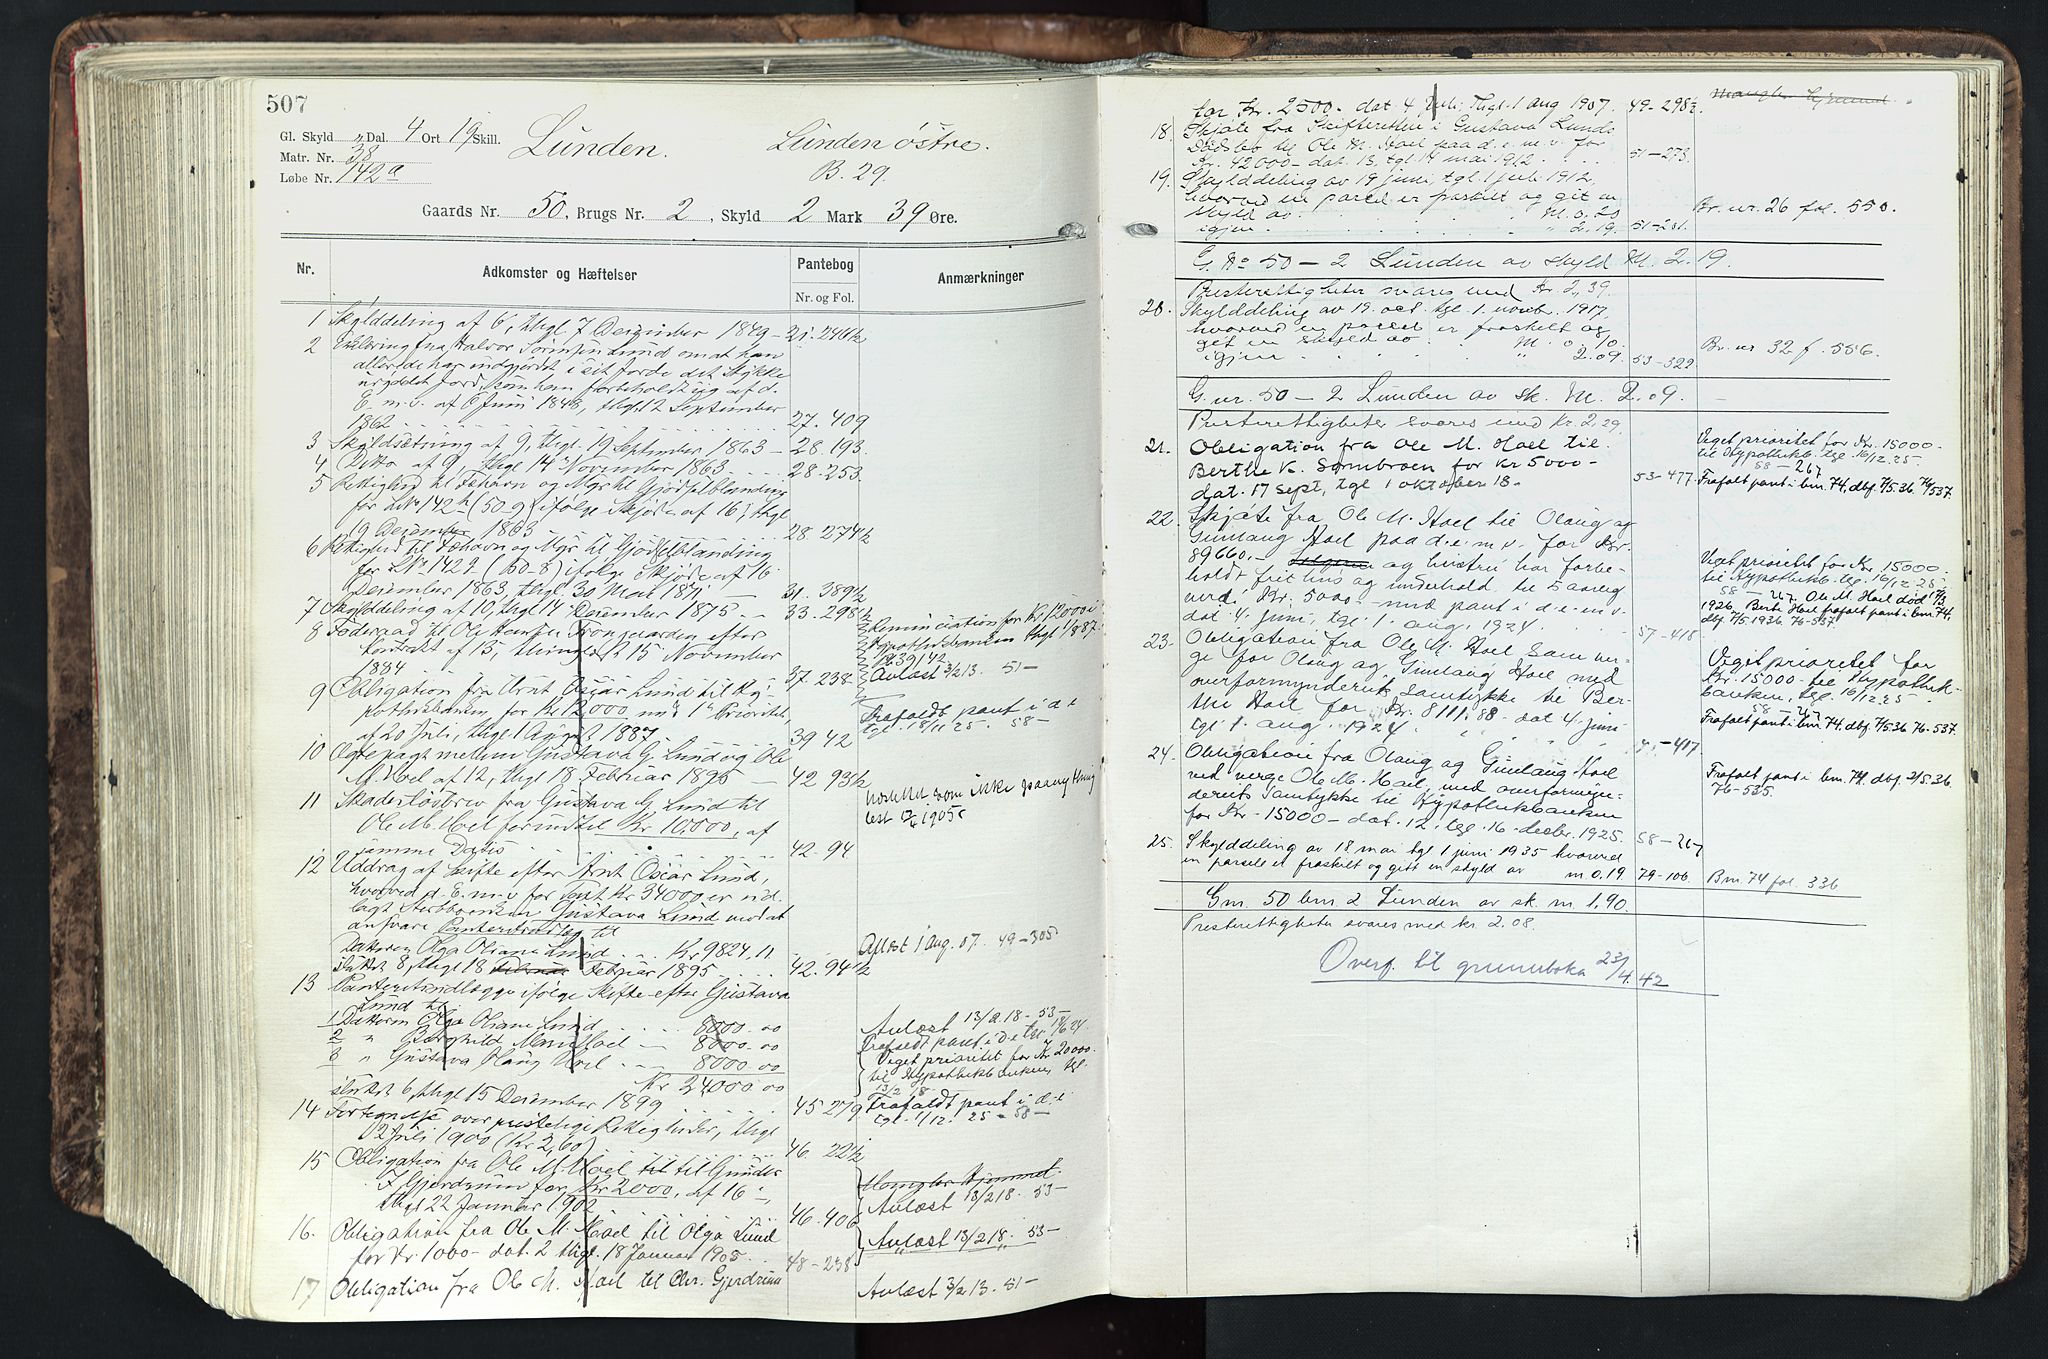 507
Gl. Skyld " Dal. 4 Ort 19 Skill.
Matr. Nr. 38
Løbe Nr. 142a
Lunden. Lunden østre.
B. 29
Gaards Nr. 50, Brugs Nr. 2, Skyld 2 Mark 39 Øre.
Nr. Adkomster og Hæftelser Pantebog Anmærkninger
Nr. og Fol.
1 Skylddeling af 6, thgl. 7 Dezember 1849 - 21. 246½
2 Erklæring fra Halvor Sørensen Lund om at han
allerede har indgjærdet i sit Jorde det Stykke
urøddet Jord, som han forbeholdt sig af d.
E. m. v. af 6 Juni 1848, thgl. 12 September
1862 27. 409
3 Skyldsætning af 9, thgl. 19 September 1863 - 28. 193.
4 Ditto af 9, thgl 14 November 1863 28-253.
5 Rettighed til Fæhavn og Myr til Gjødselblanding
for LNo 142h (50-9) ifølge Skjøde af 16, thgl
9 Dezember 1863 28 274½
6 Rettighed til Fæhavn og Myr til Gjødselblanding
for LNo 142g (50-8) ifølge Skjøde af 16
Dezember 1863, thgl. 30 Mai 1871 — 31. 389½
7 Skylddeling af 10, thgl 14 Dezember 1875 33. 298½
8 Føderaad til Ole Hansen Trongaarden efter
Kontrakt af 15, thinglæst 15 November
1884 37. 238 Avlæst 3/2 13. 51-
9 Obligation fra Arnt Oscar Lund til Hy-
pothekbanken for Kr 12,000 mod 1ste Prioritet,
af 20 Juli, thgl. 1 August 1887. 39 42
Frafaldt pant i d. e
tgl. 18/11 25. 58-
10 Ægtepagt mellem Gustava G. Lund og Ole
M. Hoel af 12, thgl 18 Februar 1895 — 42. 93½
11 Skadesløsbrev fra Gustava G. Lund til
Ole M. Hoel for indtil Kr 10,000, af
samme Dato 42. 94
12 Uddrag af Skifte efter Arnt Oscar Lund,
hvorved d. E. m. v for Taxt Kr 34000 er ud-
lagt Arveboersken Gustava Lund mod at
ansvare Panteudlæg til
Datteren Olga Oliane Lund Kr 9824,11
sluttet 8, thgl 18 Februar 1895 42. 94½
Aflæst 1 aug. 07. 49-305
13 Panteutlægge ifølge Skifte efter Gustava
Lund til
1 Datteren Olga Oliane Lund 8000.00
2 " Borghild Marie Hoel 8000.00
3 " Gustava Olaug Hoel 8000 00
Kr 24,000 00
sluttet 6, thgl 15 Dezember 1899 45 279
Avlæst 13/2 18 - 53-
Veget prioritet for Kr 20000.
Frafaldt pant i d. e
tgl. 1/12. 25 = 58-
14 Fortegnelse over prestelige Rettigheder, thgl
2 Juli 1900 (Kr 2,60) 46. 22½
15 Obligation fra Ole M. Hoel til Gunder
F. Gjerdrum for Kr 2000, af 16,
thgl 22 Januar 1902 46. 406
Mangler Hjemmel.
Avlæst 13/2 18. 53-
16. Obligation fra Ole M. Hoel til Olga Lund
for Kr. 1000- dat. 2 thgl. 18 Januar 1905 48-238
Avlæst 13/2 18. 53-
17 Obligation fra Ole M. Hoel til Chr. Gjerdrum
Avlæst 3/2 13. 51-
for Kr. 2500- dat 4 Juli, thgl. 1 aug 1907. 49-298½
18. Skjøte fra Skifteretten i Gustava Lunds
Dødsbo til Ole M. Hoel paa d. e. m. v. for
Kr. 42000- dat. 13, tgl. 14 mai 1912. 51-273.
19. Skylddeling av 19 juni, tgl. 1 juli 1912,
hvorved en parcel er fraskilt og git en
skyld av M. 0.20
igjen " 2.19. 51-281.
Br. nr. 26 fol. 550.
G. No 50-2 Lunden av skyld M. 2.19.
Presterettigheter svares med Kr. 2,39.
20. Skylddeling av 19. oct. tgl. 1. novbr. 1917,
hvorved en parcel er fraskilt og
git en skyld av M. 0.10.
igjen " 2.09. 53-322
Br. nr 32 f. 556.
G. nr. 50-2 Lunden av sk. M. 2.09.
Presterettigheter svares med Kr. 2.29
21. Obligation fra Ole M. Hoel til
Berthe K. Sørmbroen for kr 5000-
dat. 17 sept, tgl 1 oktober 18- 53-477
Veget prioritet for Kr. 15000-
til Hypothekb. tgl. 16/12.25-
58-267
Frafalt pant i bnr. 74, dbf. 7/5.36. 76/537.
22. Skjøte fra Ole M. Hoel til Olaug og
Gunlaug Hoel paa d. e. m. v. for Kr.
89660.- og hustru har forbe-
holdt frit hus og underhold til 5 aarlig
verd: Kr. 5000- med pant i d. e. m. v.
dat 4. juni, tgl. 1. aug. 1924. 57-416
Veget prioritet for Kr. 15000-
til Hypothekb. tgl. 16/12 25-
58-267. Ole M. Hoel død
1926. Berte Hoel frafalt pant i bnr. 74,
dbf 7/5.1936. 76-537.
23. Obligation fra Ole M. Hoel som ver-
ge for Olaug og Gunlaug Hoel med
overformynderiets samtykke til Ber-
the Hoel for Kr. 8111.88- dat 4. juni
tgl 1. aug. 1924. 57-417
Veget prioritet for
Kr. 15000- til Hypothek-
banken, tgl. 16/12 25-
Frafalt pant i bnr 74, dbf. 7/5.36 76-537.
24. Obligation fra Olaug og Gunlaug Hoel
ved verge Ole M. Hoel, med overformyn-
derets samtykke til Hypothekbanken
for Kr- 15000- dat. 12, tgl. 16. decbr. 1925. 58-267
Frafalt pant i bnr. 74. dbf. 7/5.36.
76-535.
25. Skylddeling av 18 mai tgl 1 juni 1935 hvorved
en parsell er fraskilt og gitt en skyld av m 0.19 79-106 Bnr. 74 fol. 336
Gnr. 50 bnr 2 Lunden av sk. m. 1,90.
Presterettigheter svares med kr. 2.08.
Overf. til grunnboka 23/4.42